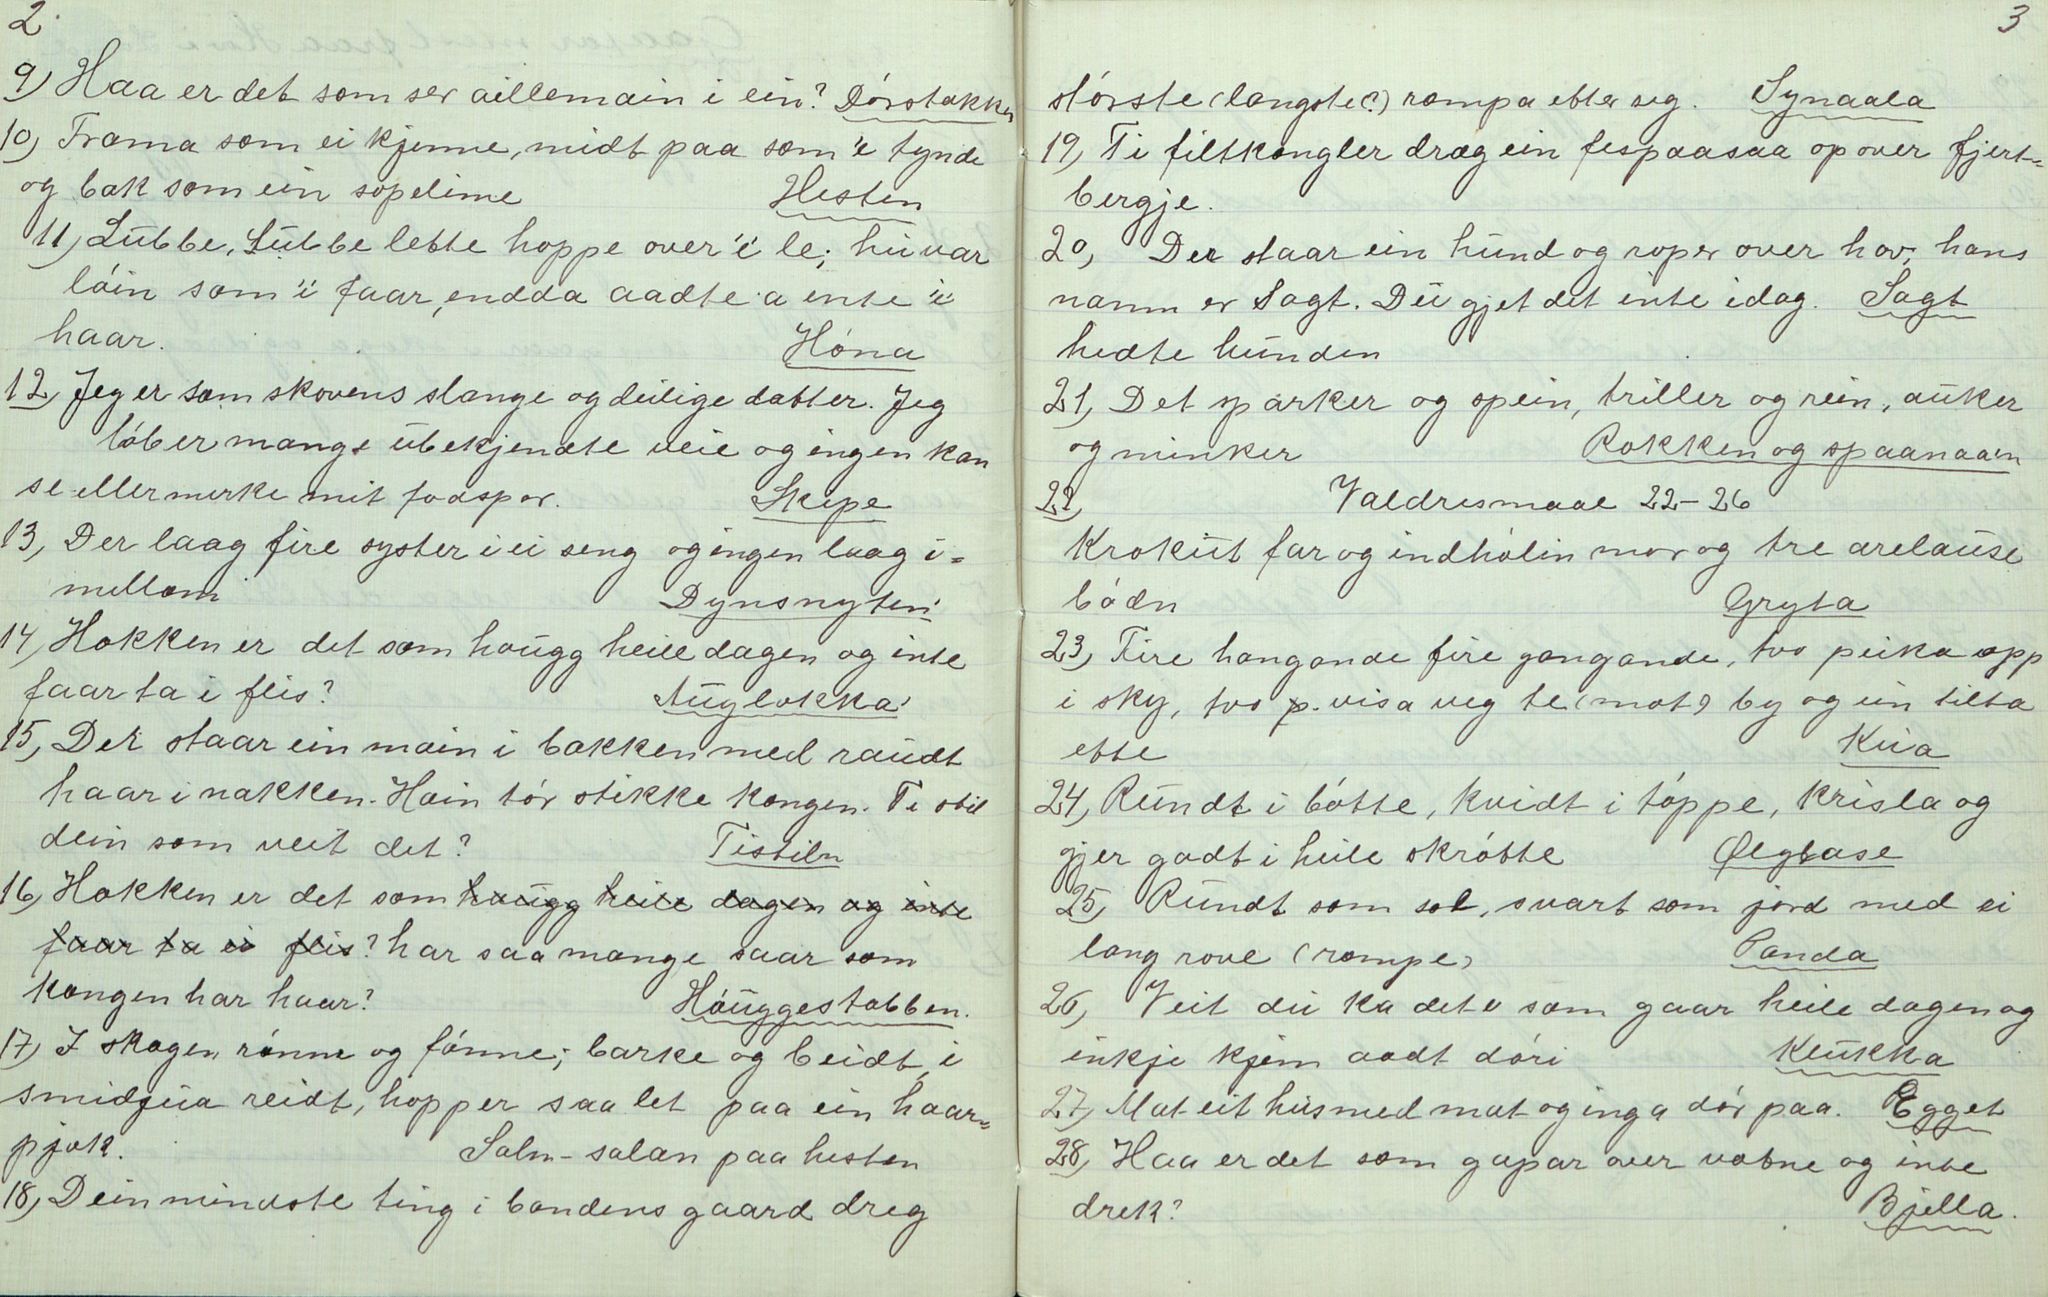 2
9) Haa er det som ser aillemain i ein? Dórstokken
10) Frama som ei kjenne, midt paa som 'e tynde
og bak som ein sopelime Hesten
11) Lubbe, Lubbe lette hoppe over 'i' le; hu var
lóin som 'i faar, endda aadte a inte 'i'
haar. Hóna
12) Jeg er som skovens slange og deilige datter. Jeg
lóber mange ubekjendte veie og ingen kan
se eller merke mit fodspor. Skipe
13, Der laag fire syster i ei seng og ingen laag i-
mellom Dynsnyten
14) Hokken er det som hougg heile dagen og inte
faar ta i flis? Auglokka
15, Der staar ein main i bakken med raudt
haar i nakken. Hain tór stikke kongen. Ti stil
dein som veit det? Tistiln
16, Hokken er det som hougg heile dagen og inte
faar ta ei flis? har saa mange saar som
kongen har haar? Hóuggestabben.
17) I skogen rónne og fónne; barke og beidt, i
smidjua reidt, hopper saa let paa ein haar-
pjok. Saln - salan paa hesten
18, Dein mindste ting i bondens gaard dreg
3
stórste (langste(?) rompa etter seg. Synaala
19, Ti filtkongler drag ein fespaasaa op over fjert-
bergje.
20, Der staar ein hund og roper over hav; hans
namn er Sagt. Du gjet det inte idag. Sagt
hedte hunden
21, Det sparker og spein, triller og rein, auker
og minker Rokken og spaanaa'n
22, Valdresmaal 22-26
Krokut far og indhólin mor og tre arelause
bódn Gryta
23, Fire hangande fire gangande, two peika opp
i sky, two p. visa veg te (mot) by og ein tilta
ette Kua
24, Rundt i bótte, kvidt i tóppe, krisla og
gjer godt i heile skrótte Ølglase
25, Rundt som sol, svart som jord med ei
lang rove (rompe) Panda
26, Veit du ka det e som gaar heile dagen og
inkje kjem aadt dóri Klukka
27, Mat eit hus med mat og inga dór paa. Egget
28, Haa er det som gapar over vatne og inte
drek? Bjella.